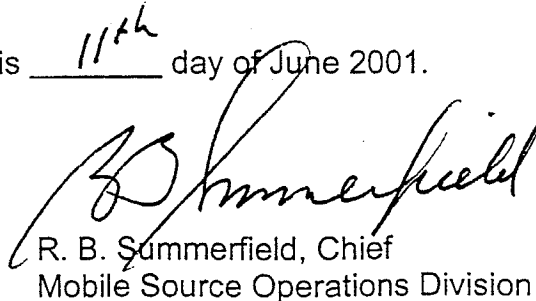 is 11th day of June 2001.
RB Summerfield
R. B. Summerfield, Chief
Mobile Source Operations Division